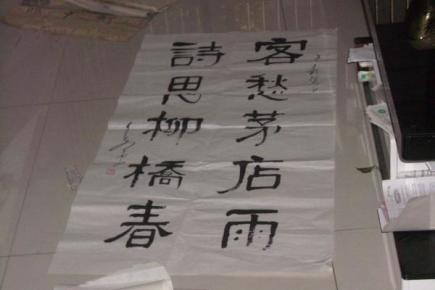 客愁茅店雨
詩思柳橋春